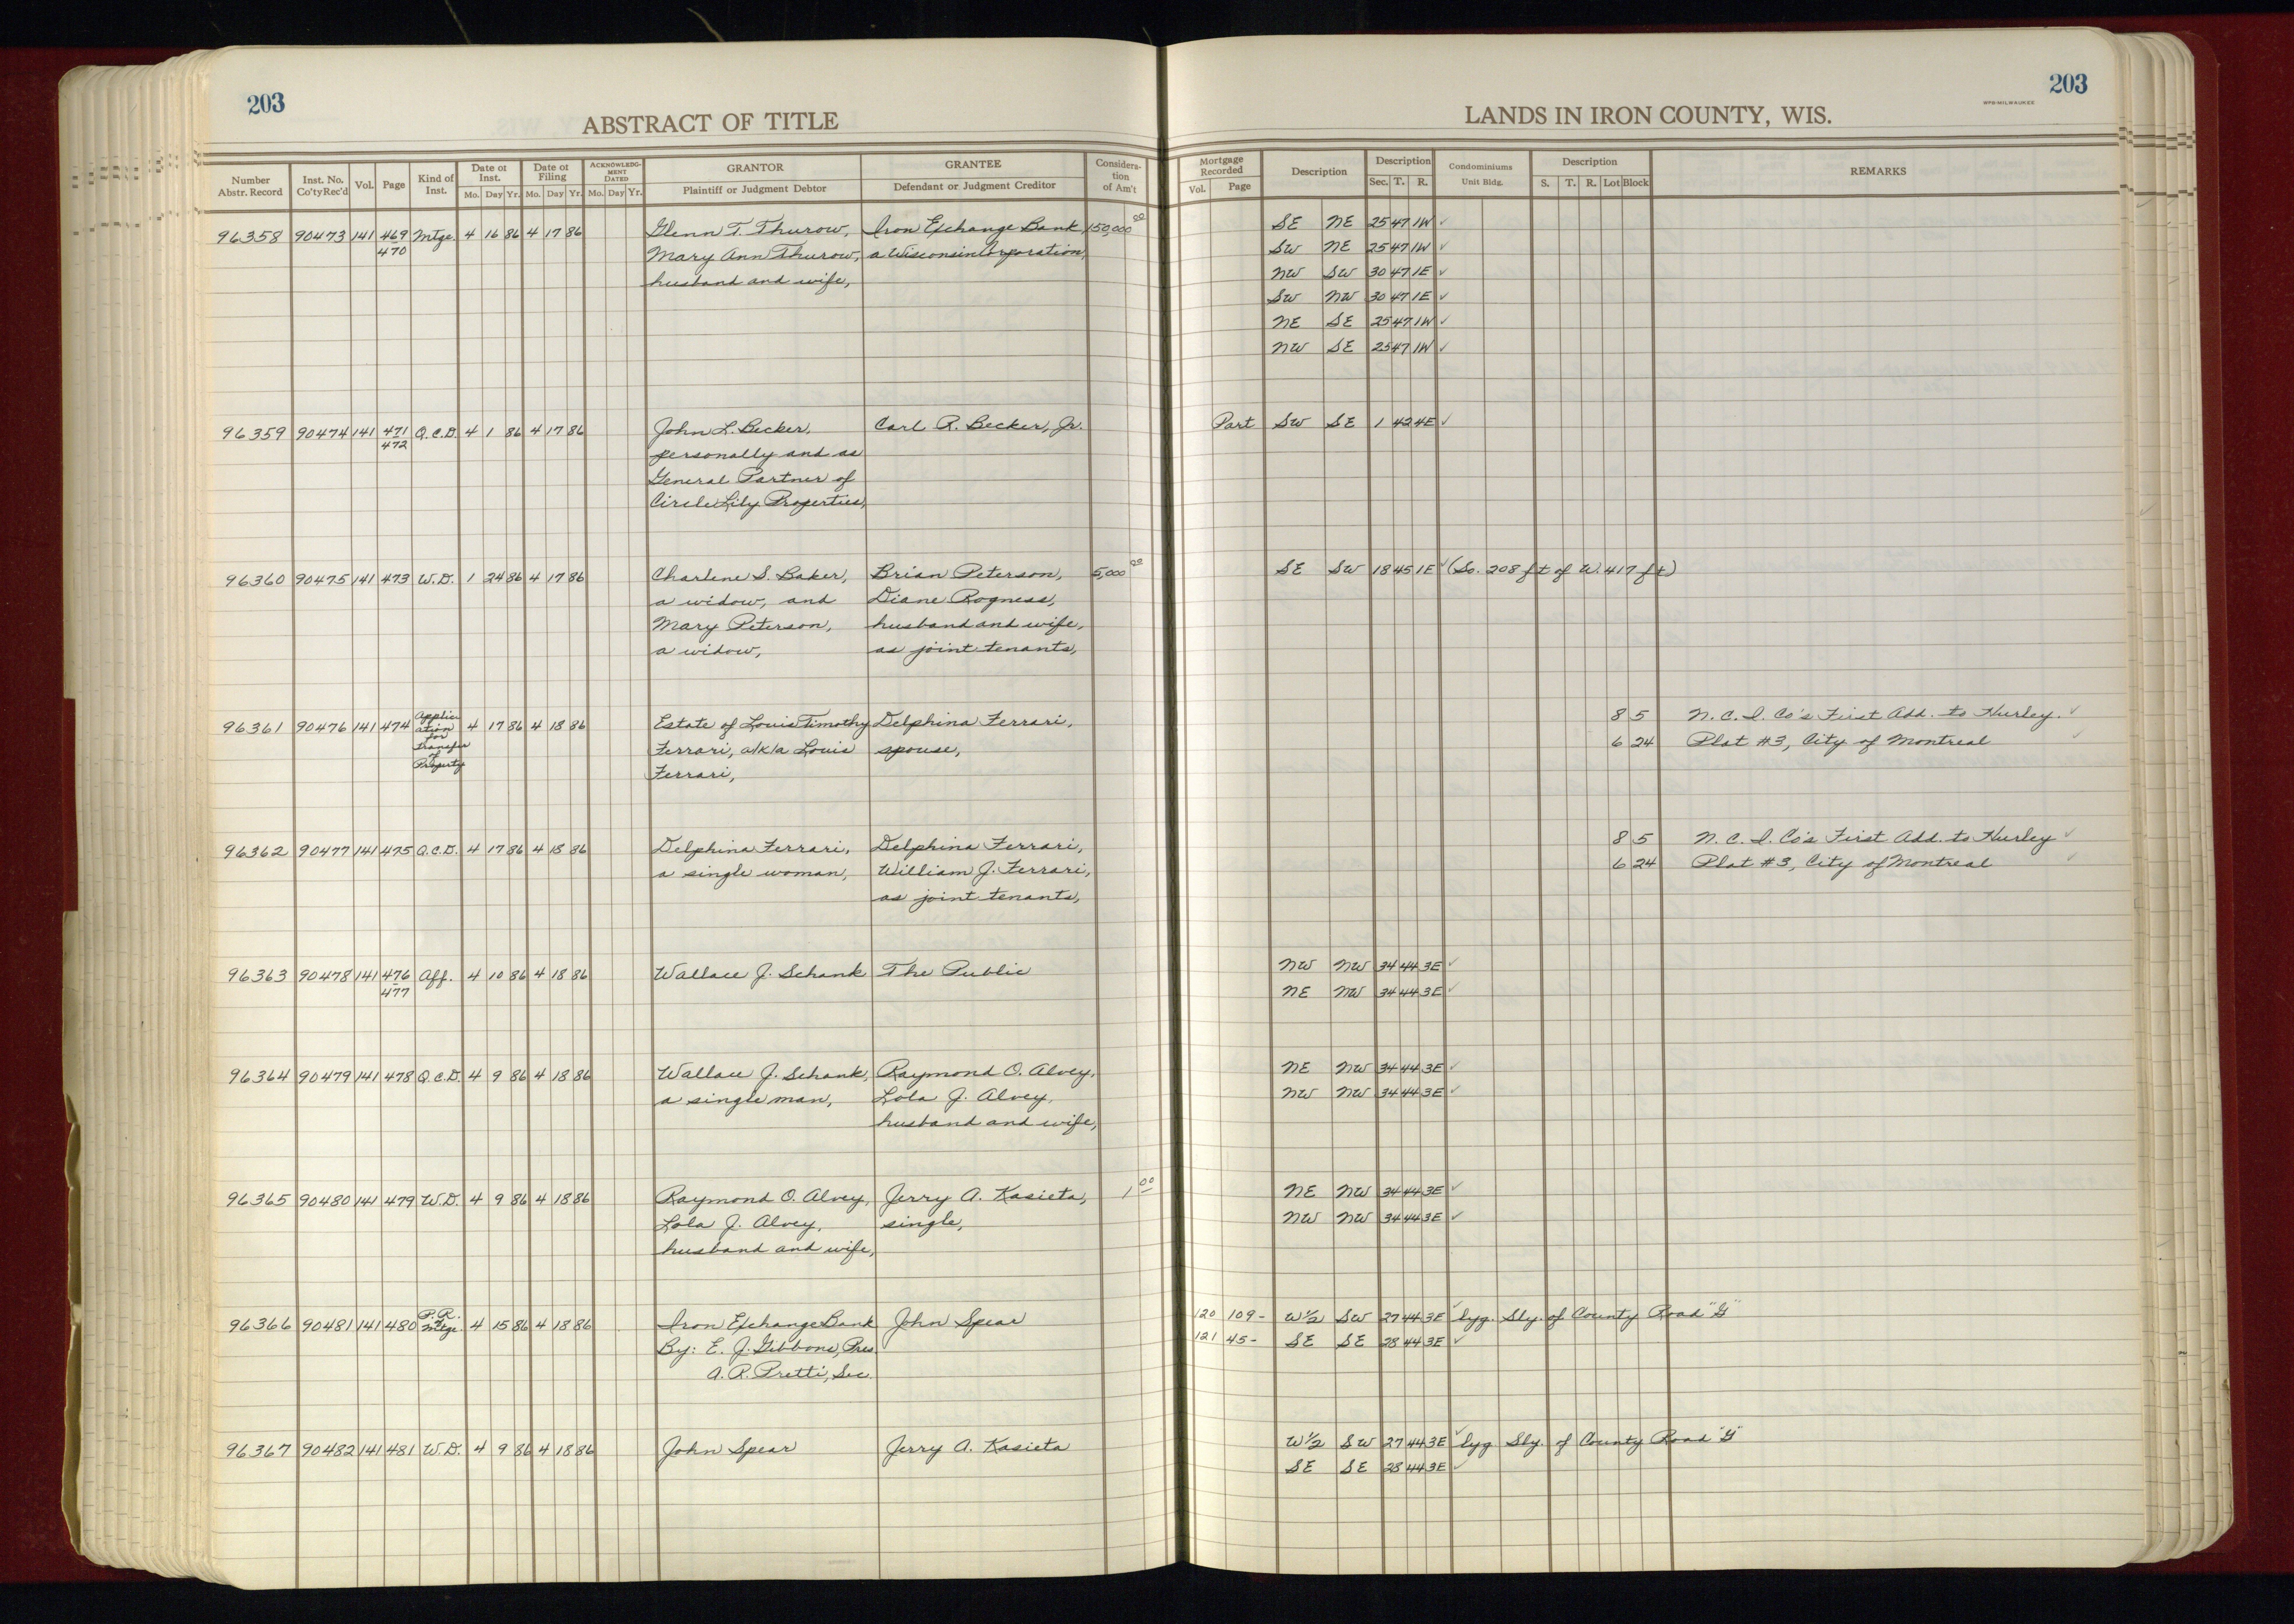 203
203
ABSTRACT OF TITLE
LANDS IN IRON COUNTY, WIS.
WPB-MILWAUKEE
Number Abstr. Record | Inst. No. Co'ty Rec'd | Vol. | Page | Kind of Inst. | Date of Inst. Mo. Day Yr. | Date of Filing Mo. Day Yr. | ACKNOWLEDGMENT DATED Mo. Day Yr. | GRANTOR Plaintiff or Judgment Debtor | GRANTEE Defendant or Judgment Creditor | Consideration of Am't | Mortgage Recorded Vol. Page | Description | Description Sec. T. R. | Condominiums Unit Bldg. | Description S. T. R. Lot Block | REMARKS
96358 90473 141 469 Mtge. 4 16 86 4 17 86 Glenn T. Thurow, Iron Exchange Bank 150,000 00 SE NE 25 47 1W ✓
470 Mary Ann Thurow, a Wisconsin Corporation, SW NE 25 47 1W ✓
husband and wife, NW SW 30 47 1E ✓
SW NW 30 47 1E ✓
NE SE 25 47 1W ✓
NW SE 25 47 1W ✓
96359 90474 141 471 Q.C.D. 4 1 86 4 17 86 John L. Becker, Carl R. Becker, Jr. Part SW SE 1 42 4E ✓
472 personally and as
General Partner of
Circle Lily Properties,
96360 90475 141 473 W.D. 1 24 86 4 17 86 Charlene S. Baker, Brian Peterson, 5,000 00 SE SW 18 45 1E ✓ (So. 208 ft of W. 417 ft)
a widow, and Diane Rogness,
Mary Peterson, husband and wife,
a widow, as joint tenants,
96361 90476 141 474 Application for Transfer of Property 4 17 86 4 18 86 Estate of Louis Timothy Delphina Ferrari, 8 5 N.C.I. Co's First Add. to Hurley. ✓
Ferrari, a/k/a Louis spouse, 6 24 Plat #3, City of Montreal ✓
Ferrari,
96362 90477 141 475 Q.C.D. 4 17 86 4 18 86 Delphina Ferrari, Delphina Ferrari, 8 5 N.C.I. Co's First Add. to Hurley ✓
a single woman, William J. Ferrari, 6 24 Plat #3, City of Montreal ✓
as joint tenants,
96363 90478 141 476 Aff. 4 10 86 4 18 86 Wallace J. Schank The Public NW NW 34 44 3E ✓
477 NE NW 34 44 3E ✓
96364 90479 141 478 Q.C.D. 4 9 86 4 18 86 Wallace J. Schank, Raymond O. Alvey, NE NW 34 44 3E ✓
a single man, Lola J. Alvey, NW NW 34 44 3E ✓
husband and wife,
96365 90480 141 479 W.D. 4 9 86 4 18 86 Raymond O. Alvey, Jerry A. Kasieta, 1 00 NE NW 34 44 3E ✓
Lola J. Alvey, single, NW NW 34 44 3E ✓
husband and wife,
96366 90481 141 480 P.R. of Mtge. 4 15 86 4 18 86 Iron Exchange Bank John Spear 120 109- W½ SW 27 44 3E ✓ lyg. Sly. of County Road "G"
By: E. J. Gibbons, Pres. 121 45- SE SE 28 44 3E ✓
A. R. Pretti, Sec.
96367 90482 141 481 W.D. 4 9 86 4 18 86 John Spear Jerry A. Kasieta W½ SW 27 44 3E ✓ lyg. Sly. of County Road "G"
SE SE 28 44 3E ✓